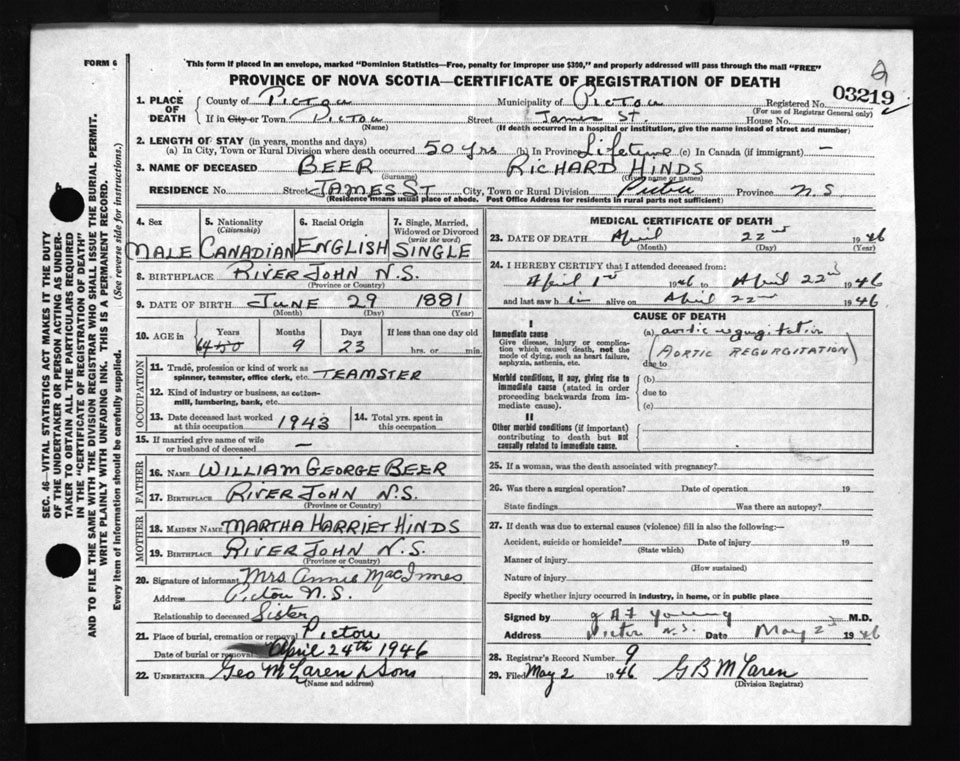 FORM 6
This form if placed in an envelope, marked "Dominion Statistics—Free, penalty for improper use $300," and properly addressed will pass through the mail "FREE"
PROVINCE OF NOVA SCOTIA—CERTIFICATE OF REGISTRATION OF DEATH
03219
1. PLACE OF DEATH County of Pictou Municipality of Pictou Registered No.
(For use of Registrar General only)
If in City or Town Pictou Street James St. House No.
(Name) (If death occurred in a hospital or institution, give the name instead of street and number)
2. LENGTH OF STAY (in years, months and days)
(a) In City, Town or Rural Division where death occurred 50 yrs (b) In Province Lifetime (c) In Canada (if immigrant) —
3. NAME OF DECEASED BEER RICHARD HINDS
(Surname) (Given name or names)
RESIDENCE No. Street JAMES ST City, Town or Rural Division Pictou Province N.S
(Residence means usual place of abode. Post Office Address for residents in rural parts not sufficient)
SEC. 46—VITAL STATISTICS ACT MAKES IT THE DUTY
OF THE UNDERTAKER OR PERSON ACTING AS UNDER-
TAKER TO OBTAIN ALL THE PARTICULARS REQUIRED
IN THE "CERTIFICATE OF REGISTRATION OF DEATH"
AND TO FILE THE SAME WITH THE DIVISION REGISTRAR WHO SHALL ISSUE THE BURIAL PERMIT.
WRITE PLAINLY WITH UNFADING INK. THIS IS A PERMANENT RECORD.
Every item of information should be carefully supplied. (See reverse side for instructions.)
4. Sex 5. Nationality 6. Racial Origin 7. Single, Married,
(Citizenship) Widowed or Divorced
(write the word)
MALE CANADIAN ENGLISH SINGLE
8. BIRTHPLACE RIVER JOHN N.S.
(Province or Country)
9. DATE OF BIRTH JUNE 29 1881
(Month) (Day) (Year)
10. AGE in Years Months Days If less than one day old
64 9 23 hrs. or min.
OCCUPATION
11. Trade, profession or kind of work as
spinner, teamster, office clerk, etc. TEAMSTER
12. Kind of industry or business, as cotton-
mill, lumbering, bank, etc.
13. Date deceased last worked 14. Total yrs. spent in
at this occupation 1943 at this occupation
15. If married give name of wife
or husband of deceased —
FATHER
16. NAME WILLIAM GEORGE BEER
17. BIRTHPLACE RIVER JOHN N.S.
(Province or Country)
MOTHER
18. MAIDEN NAME MARTHA HARRIET HINDS
19. BIRTHPLACE RIVER JOHN N.S.
(Province or Country)
20. Signature of informant Mrs Annie MacInnes
Address Pictou N.S.
Relationship to deceased Sister
21. Place of burial, cremation or removal Pictou
Date of burial or removal April 24th 1946
22. UNDERTAKER Geo McLaren & Sons
(Name and address)
MEDICAL CERTIFICATE OF DEATH
23. DATE OF DEATH April 22nd 1946
(Month) (Day) (Year)
24. I HEREBY CERTIFY that I attended deceased from:
April 1st 1946 to April 22nd 1946
and last saw him alive on April 22nd 1946
CAUSE OF DEATH
I
Immediate cause (a) aortic regurgitation
Give disease, injury or complica-
tion which caused death, not the
mode of dying, such as heart failure,
asphyxia, asthenia, etc.
(AORTIC REGURGITATION)
due to
Morbid conditions, if any, giving rise to
immediate cause (stated in order
proceeding backwards from im-
mediate cause).
(b)
due to
(c)
II
Other morbid conditions (if important)
contributing to death but not
causally related to immediate cause.
25. If a woman, was the death associated with pregnancy?
26. Was there a surgical operation? Date of operation 19
State findings Was there an autopsy?
27. If death was due to external causes (violence) fill in also the following:—
Accident, suicide or homicide? Date of injury 19
(State which)
Manner of injury
(How sustained)
Nature of injury
Specify whether injury occurred in industry, in home, or in public place
Signed by Young M.D.
Address Pictou N.S. Date May 2nd 1946
28. Registrar's Record Number 9
29. Filed May 2 1946 G B McLaren
(Division Registrar)